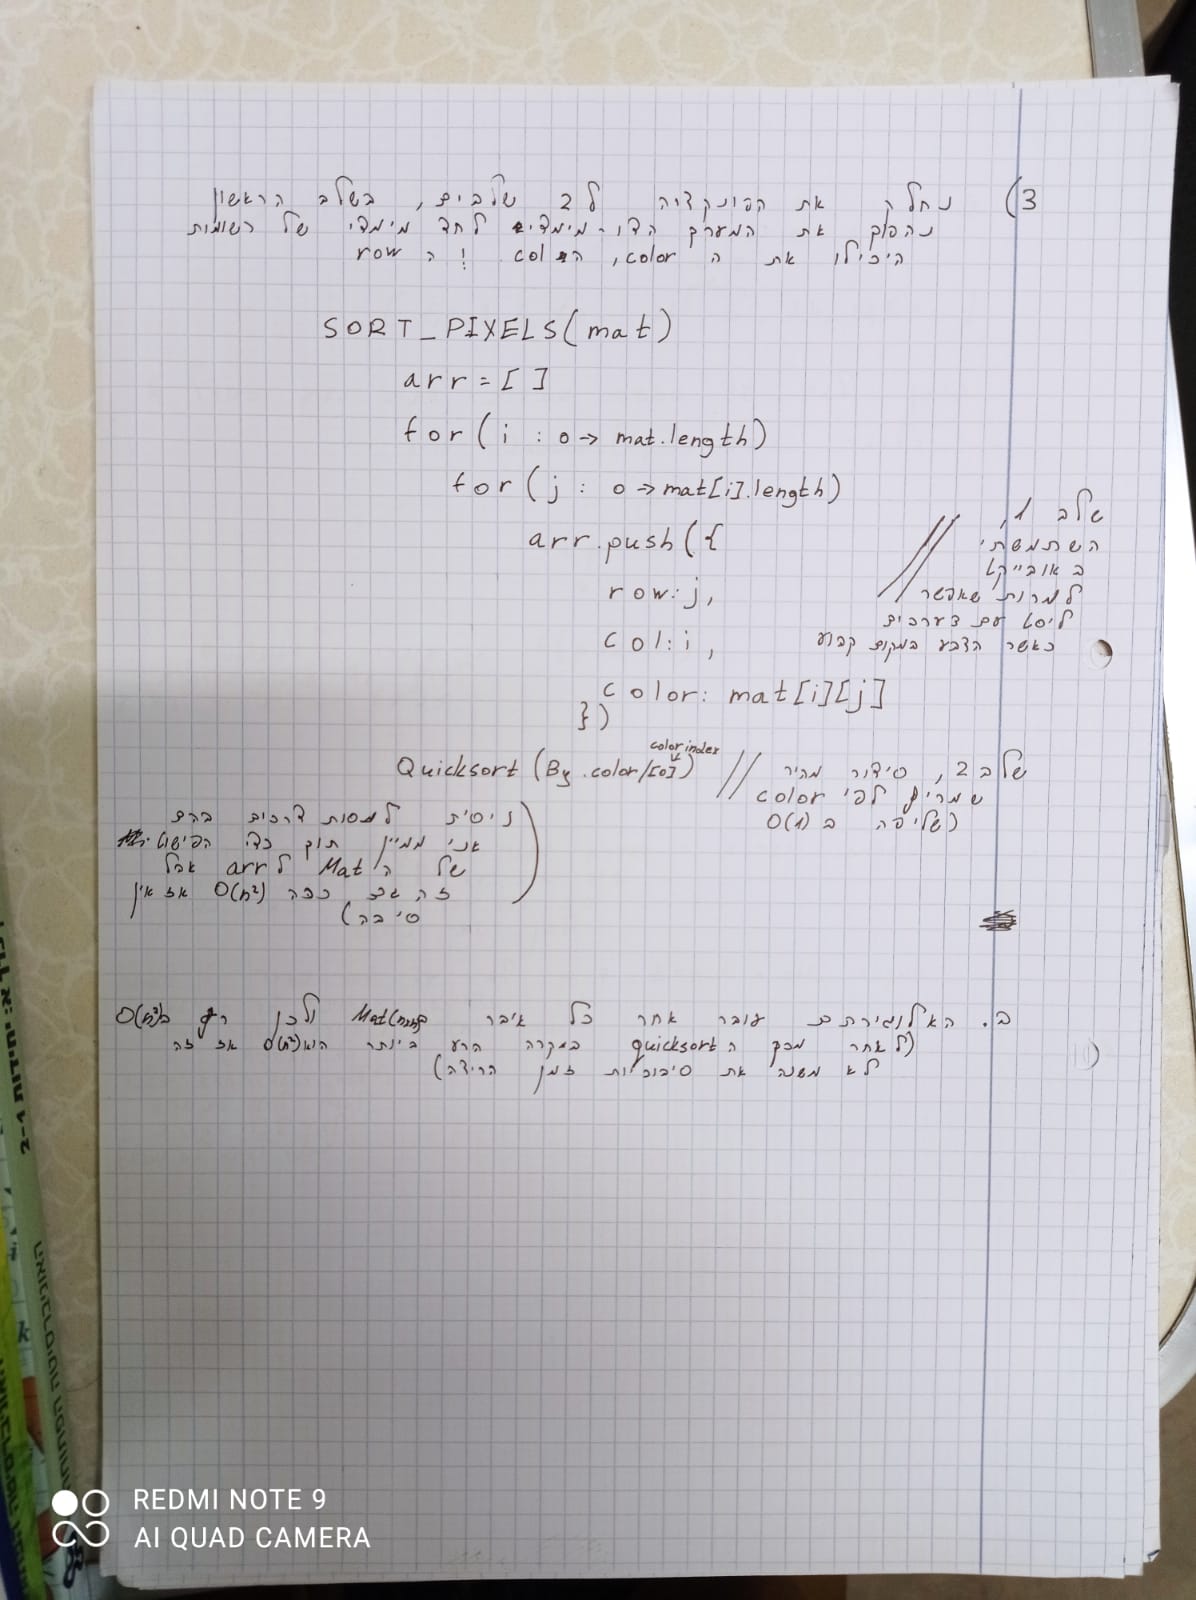 3) נחלק את הפונקציה ל 2 שלבים, בשלב הראשון
נהפוך את המערך הדו-מימדי לחד מימדי של רשומות
היכילו את ה color, ה col ו ה row
SORT_PIXELS(mat)
arr = [ ]
for ( i : 0 -> mat.length)
for ( j : 0 -> mat[i].length)
arr.push({
row: j,
col: i,
color: mat[i][j]
})
// שלב 1,
השתמשתי
ב אובייקט
למרות שאפשר
ליסט עם 3 ערכים
כאשר הצבע במקום קבוע
color index
Quicksort (By .color/[0])
// שלב 2, סידור מהיר
שמריץ לפי color
(שליפה ב O(1)
(ניסית למסות דרכים בהם
אני ממיין תוך כדי
של ה Mat ל arr אבל
זה גם ככה O(n²) אז אין
סיבה)
ב. האלוגירתם עובר אחר כל איבר Mat ולכן רץ ב O(n²)
(לאחר מכן ה quicksort במקרה הרע ביותר הוא O(n²) אז זה
לא משנה את סיבוכיות זמן הריצה)
REDMI NOTE 9
AI QUAD CAMERA